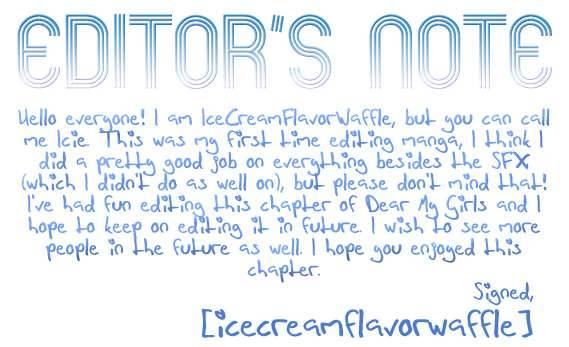 EDITOR'S NOTE
Hello everyone! I am IceCreamFlavorWaffle, but you can call
me Icie. This was my first time editing manga, I think I
did a pretty good job on everything besides the SFX
(which I didn't do as well on), but please don't mind that!
I've had fun editing this chapter of Dear My Girls and I
hope to keep on editing it in future. I wish to see more
people in the future as well. I hope you enjoyed this
chapter.
Signed,
[icecreamflavorwaffle]